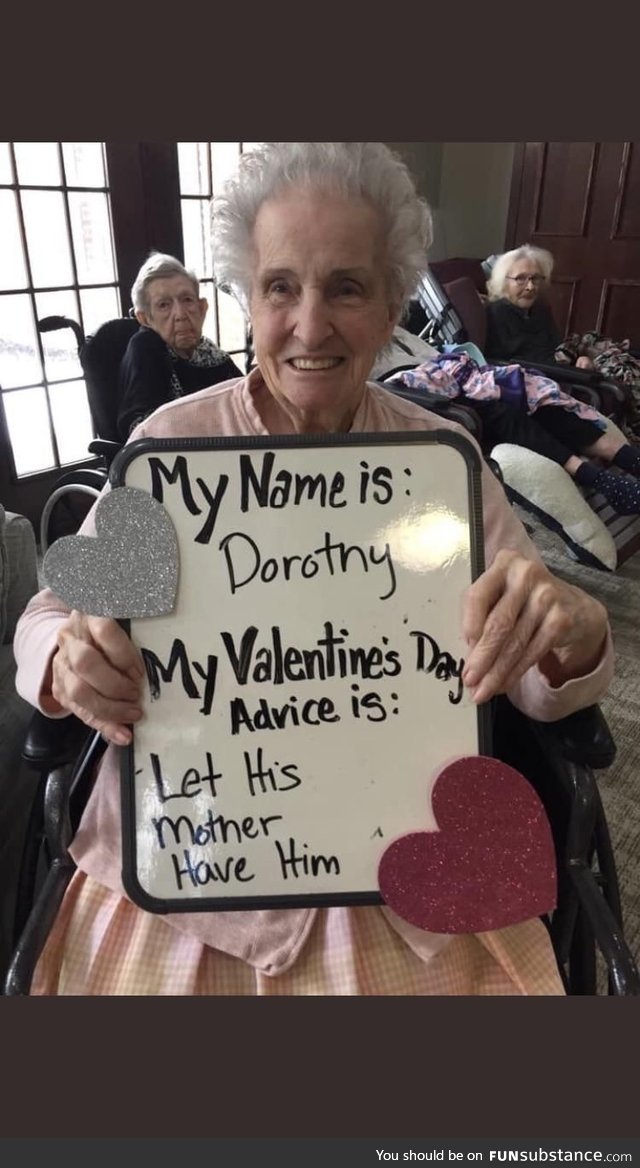 My Name is:
Dorothy
My Valentine's Day
Advice is:
Let His
Mother
Have Him
You should be on FUNsubstance.com